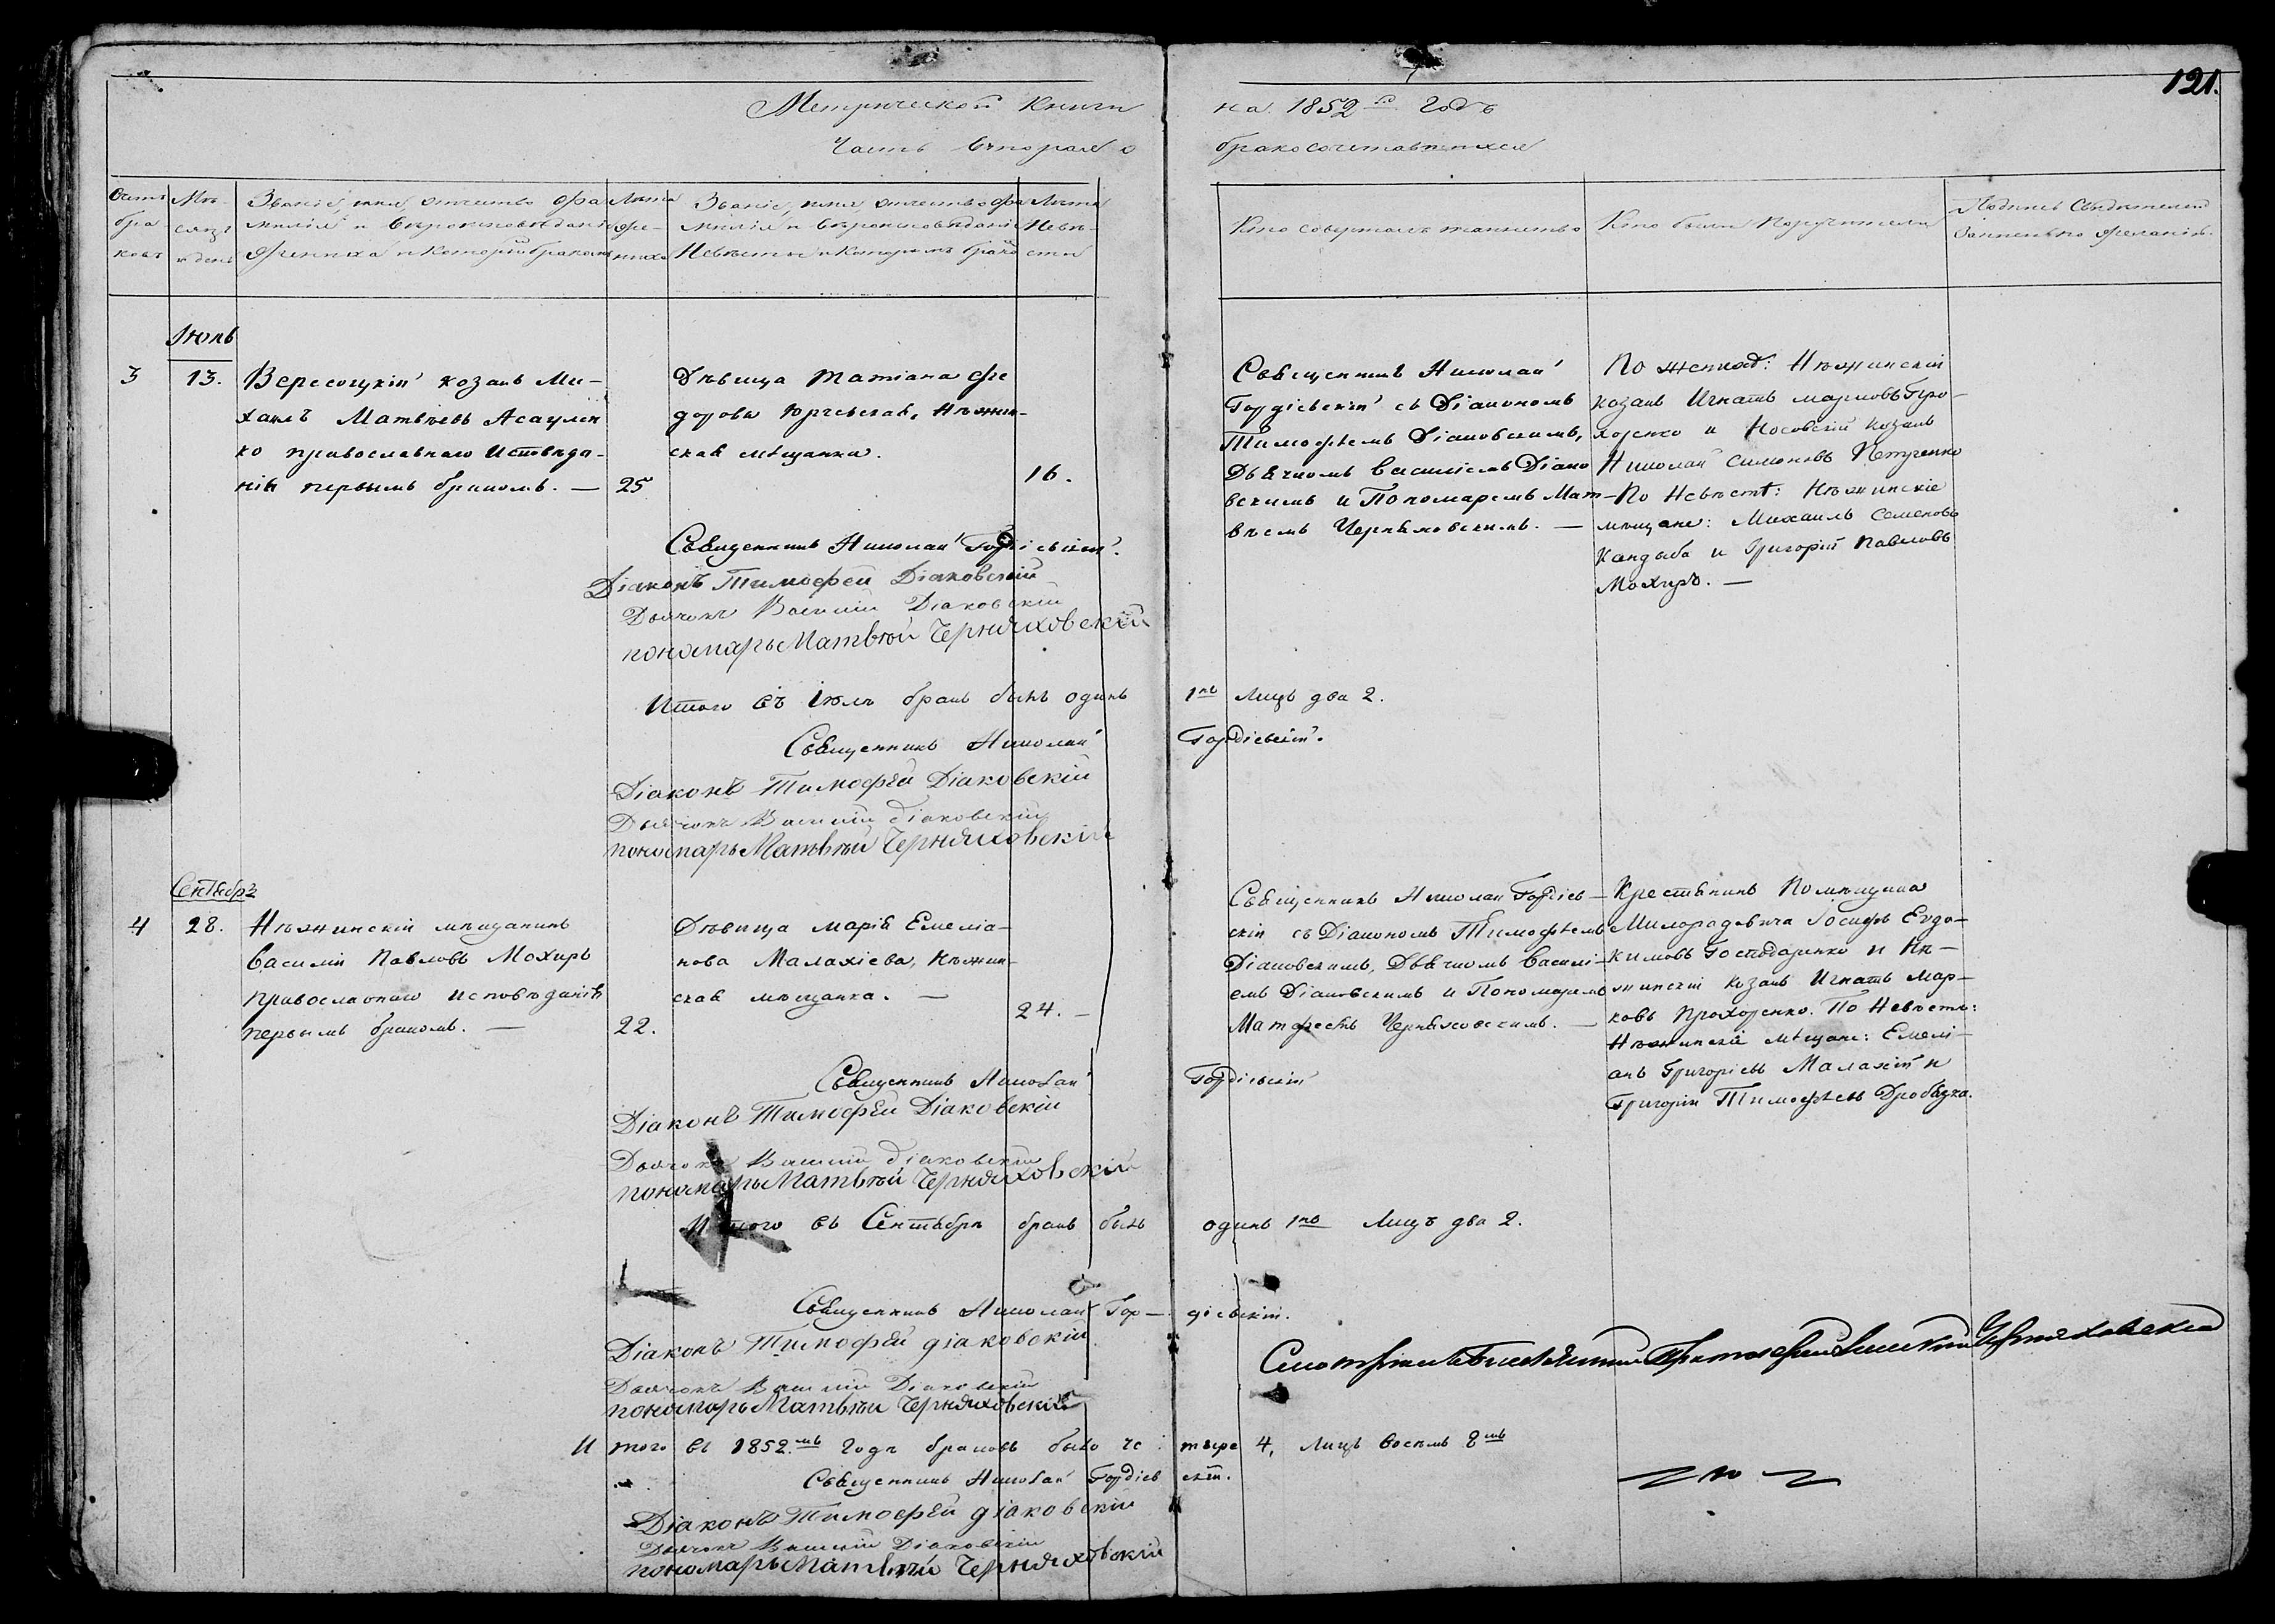 121.
Метрической Книги на 1852й Годъ
Часть Вторая о бракосочетавшихся
Счетъ браковъ
Мѣсяцъ и день
Званіе, имя отчество фамилія и вѣроисповѣданіе Жениха и которымъ бракомъ
Лѣта Жениха
Званіе, имя, отчество фамилія и вѣроисповѣданіе Невѣсты и которымъ бракомъ
Лѣта Невѣсты
Кто совершалъ таинство
Кто были Поручители
Подпись Свидѣтелей записи по желанію.
Іюль
3
13.
Вересоцкій козакъ Ми-
хаилъ Матвѣевъ Асаулен
ко православнаго Исповѣда-
нія первымъ бракомъ. —
25
Дѣвица Татіана Фе
дорова Юрьевская, Нѣжин-
ская мѣщанка.
16.
Священникъ Николай
Гордіевскій съ Діакономъ
Тимофѣемъ Діаковскимъ,
Дьячкомъ Василіемъ Діако
вскимъ и Пономаремъ Мат-
вѣемъ Черняховскимъ. —
По женихѣ: Нѣжинскій
козакъ Игнатъ Марковъ Про-
хоренко и Носовскій козакъ
Николай Симоновъ Петренко
По Невѣстѣ: Нѣжинскіе
мѣщане: Михаилъ Семеновъ
Кандыба и Григорій Павловъ
Мохиръ. —
Священникъ Николай Гордіевскій.
Діаконъ Тимофей Діаковскій
Дьячокъ Василій Діаковскій
пономарь Матвѣй Черняховскій
Итого въ Іюлѣ бракъ былъ одинъ 1нъ Лицъ два 2.
Священникъ Николай Гордіевскій.
Діаконъ Тимофѣй Діаковскій
Дьячокъ Василій Діаковскій
пономарь Матвѣй Черняховскій
Сентябрь
4
28.
Нѣжинскій мѣщанинъ
Василій Павловъ Мохиръ
православнаго исповѣданія
первымъ бракомъ. —
22.
Дѣвица Марія Емеліа-
нова Малахіева, Нѣжин-
ская мѣщанка. —
24. —
Священникъ Николай Гордіев-
скій съ Діакономъ Тимофѣемъ
Діаковскимъ, Дьячкомъ Василі-
емъ Діаковскимъ и Пономаремъ
Матфеемъ Черняховскимъ. —
Крестьянинъ Помѣщика
Милорадовича Іосифъ Евдо-
кимовъ Господаренко и Нѣ-
жинскій козакъ Игнатъ Мар-
ковъ Прохоренко. По Невѣстѣ:
Нѣжинскіе мѣщане: Емелі-
анъ Григорьевъ Малахій и
Григорій Тимофѣевъ Дробязка.
Священникъ Николай Гордіевскій
Діаконъ Тимофѣй Діаковскій
Дьячокъ Василій Діаковскій
пономарь Матвѣй Черняховскій
Итого въ Сентябрѣ бракъ былъ одинъ 1нъ Лицъ два 2.
Священникъ Николай Гор- діевскій.
Діаконъ Тимофѣй діаковскій
Дьячокъ Василій Діаковскій
пономарь Матвѣй Черняховскій
Черняховскій
Итого въ 1852мъ Годѣ браковъ было че тыре 4, Лицъ восемь 8мь
Священникъ Николай Гордіев скій.
Діаконъ Тимофѣй діаковскій
Дьячокъ Василій Діаковскій
пономарь Матвѣй Черняховскій